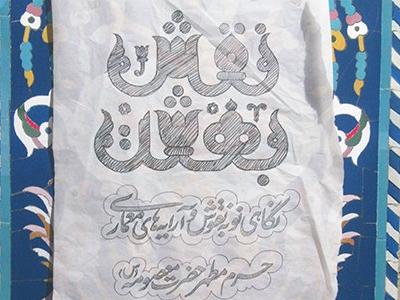 نقش
بنقش
نگاهی نو به نقوش و آرایه‌های معماری
حرم مطهر حضرت معصومه (س)